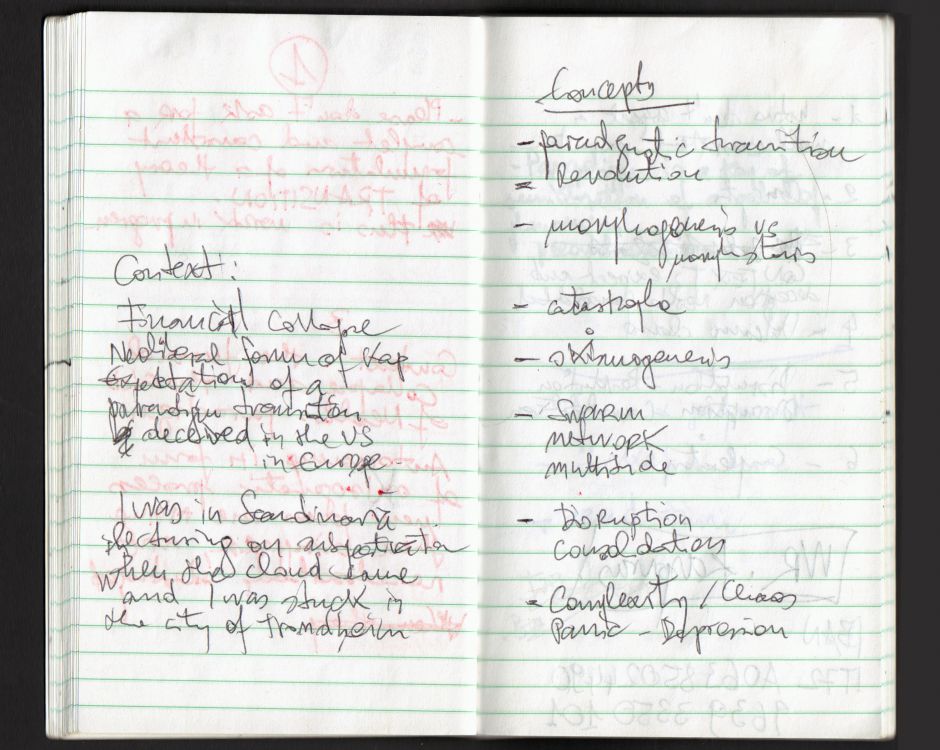 Context:
Financial Collapse
Neoliberal form of Kap
Expectation of a
paradigm transition
deceived in the US
in Europe
I was in Scandinavia
lecturing on
when the cloud came
and I was stuck in
the city of
Concepts
- paradigmatic transition
= Revolution
- morphogenesis vs
morphostasis
- catastrophe
- skismogenesis
- Swarm
network
multitude
- Disruption
Consolidation
- Complexity / Chaos
Panic - Depression